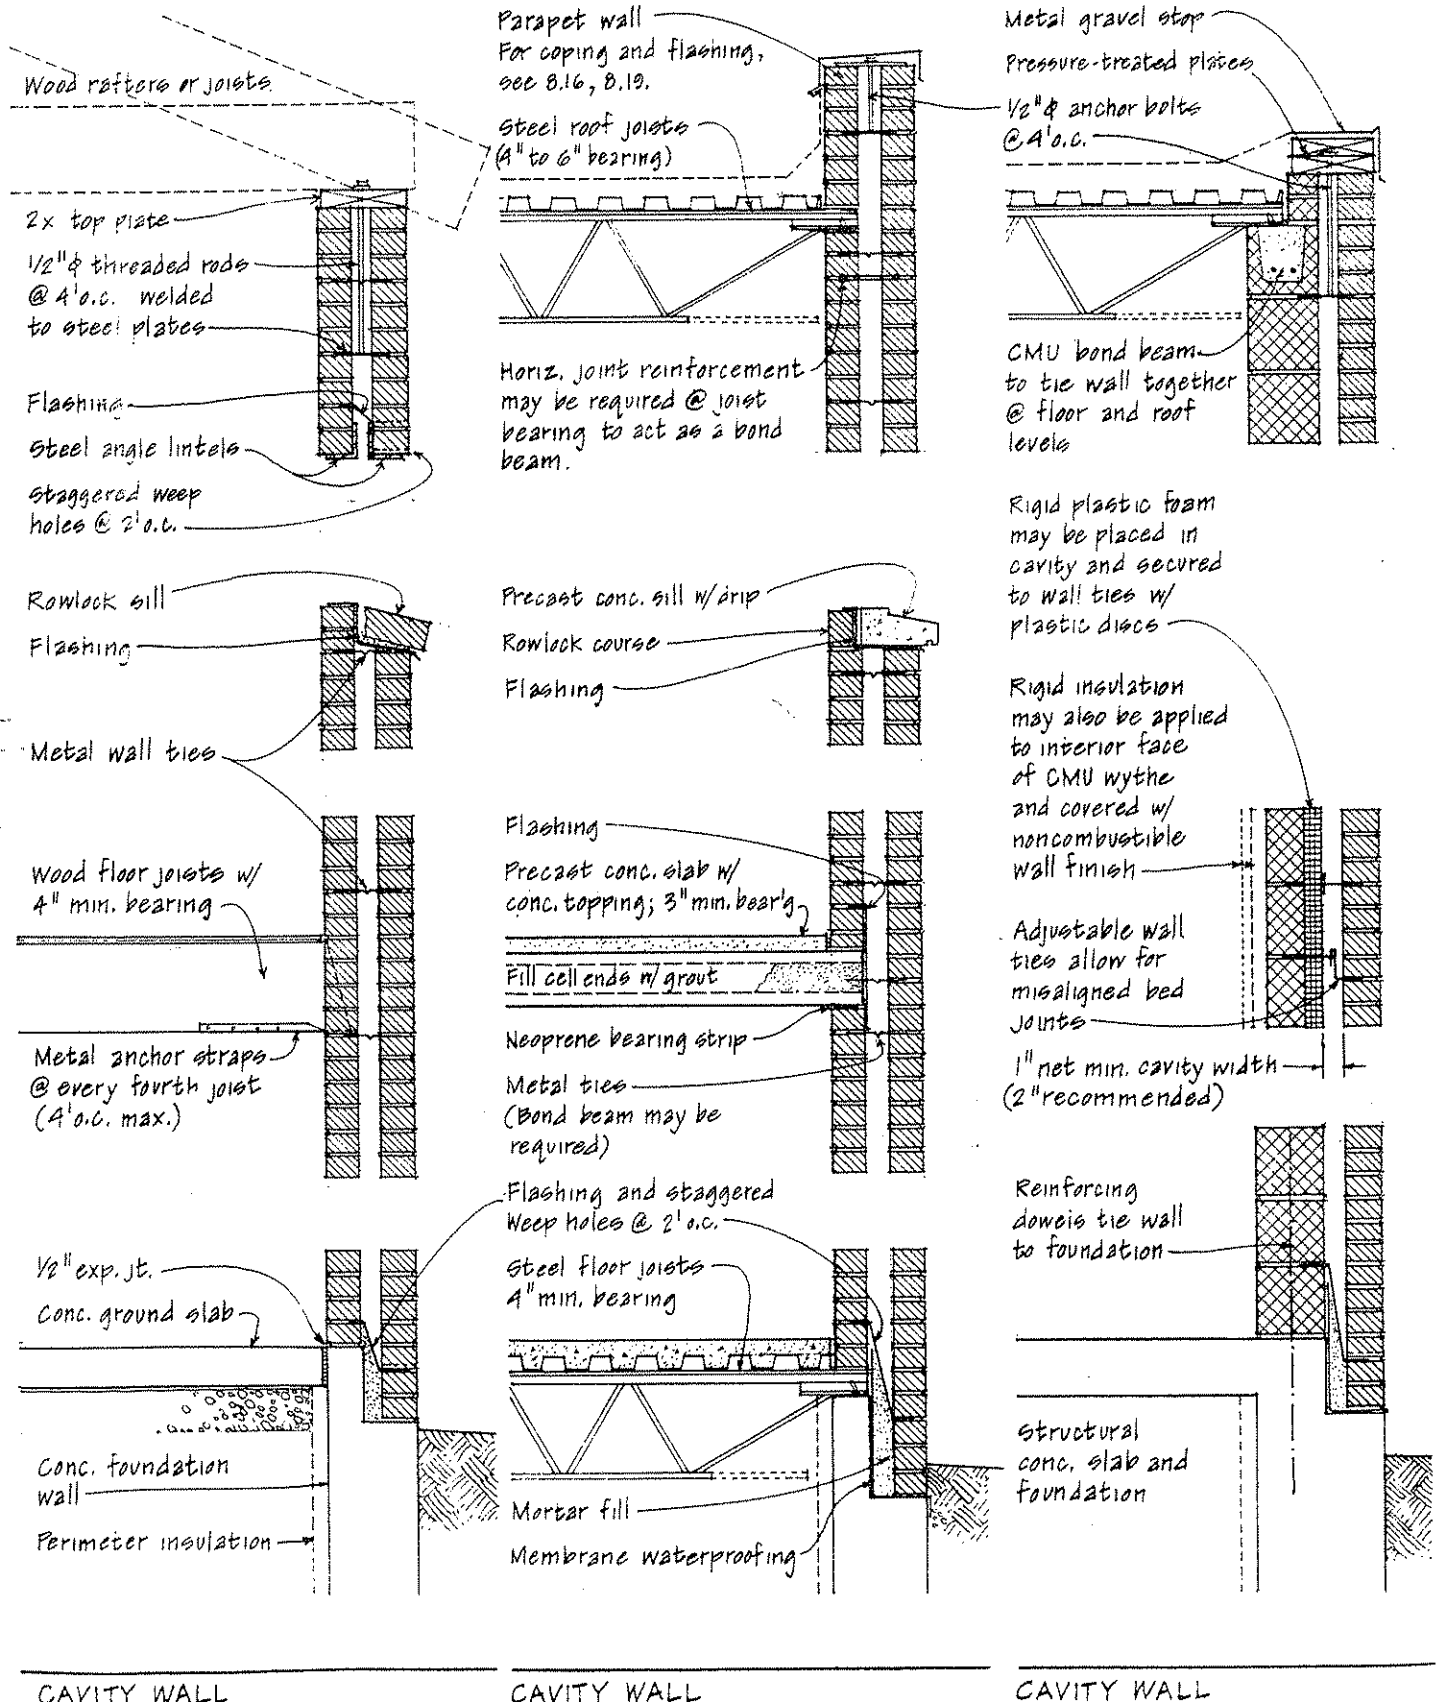 Wood rafters or joists
2x top plate
1/2"ϕ threaded rods
@ 4'o.c. welded
to steel plates
Flashing
Steel angle lintels
Staggered weep
holes @ 2'o.c.
Rowlock sill
Flashing
Metal wall ties
Wood floor joists w/
4" min. bearing
Metal anchor straps
@ every fourth joist
(4'o.c. max.)
1/2" exp. jt.
Conc. ground slab
Conc. foundation
wall
Perimeter insulation
CAVITY WALL
Parapet wall
For coping and flashing,
see 8.16, 8.19.
Steel roof joists
(4" to 6" bearing)
Horiz. joint reinforcement
may be required @ joist
bearing to act as a bond
beam.
Precast conc. sill w/drip
Rowlock course
Flashing
Flashing
Precast conc. slab w/
conc. topping; 3" min. bear'g
Fill cell ends w/ grout
Neoprene bearing strip
Metal ties
(Bond beam may be
required)
Flashing and staggered
Weep holes @ 2'o.c.
Steel floor joists
4" min. bearing
Mortar fill
Membrane waterproofing
CAVITY WALL
Metal gravel stop
Pressure-treated plates
1/2"ϕ anchor bolts
@ 4'o.c.
CMU bond beam
to tie wall together
@ floor and roof
levels
Rigid plastic foam
may be placed in
cavity and secured
to wall ties w/
plastic discs
Rigid insulation
may also be applied
to interior face
of CMU wythe
and covered w/
noncombustible
wall finish
Adjustable wall
ties allow for
misaligned bed
joints
1" net min. cavity width
(2" recommended)
Reinforcing
dowels tie wall
to foundation
Structural
conc. slab and
foundation
CAVITY WALL